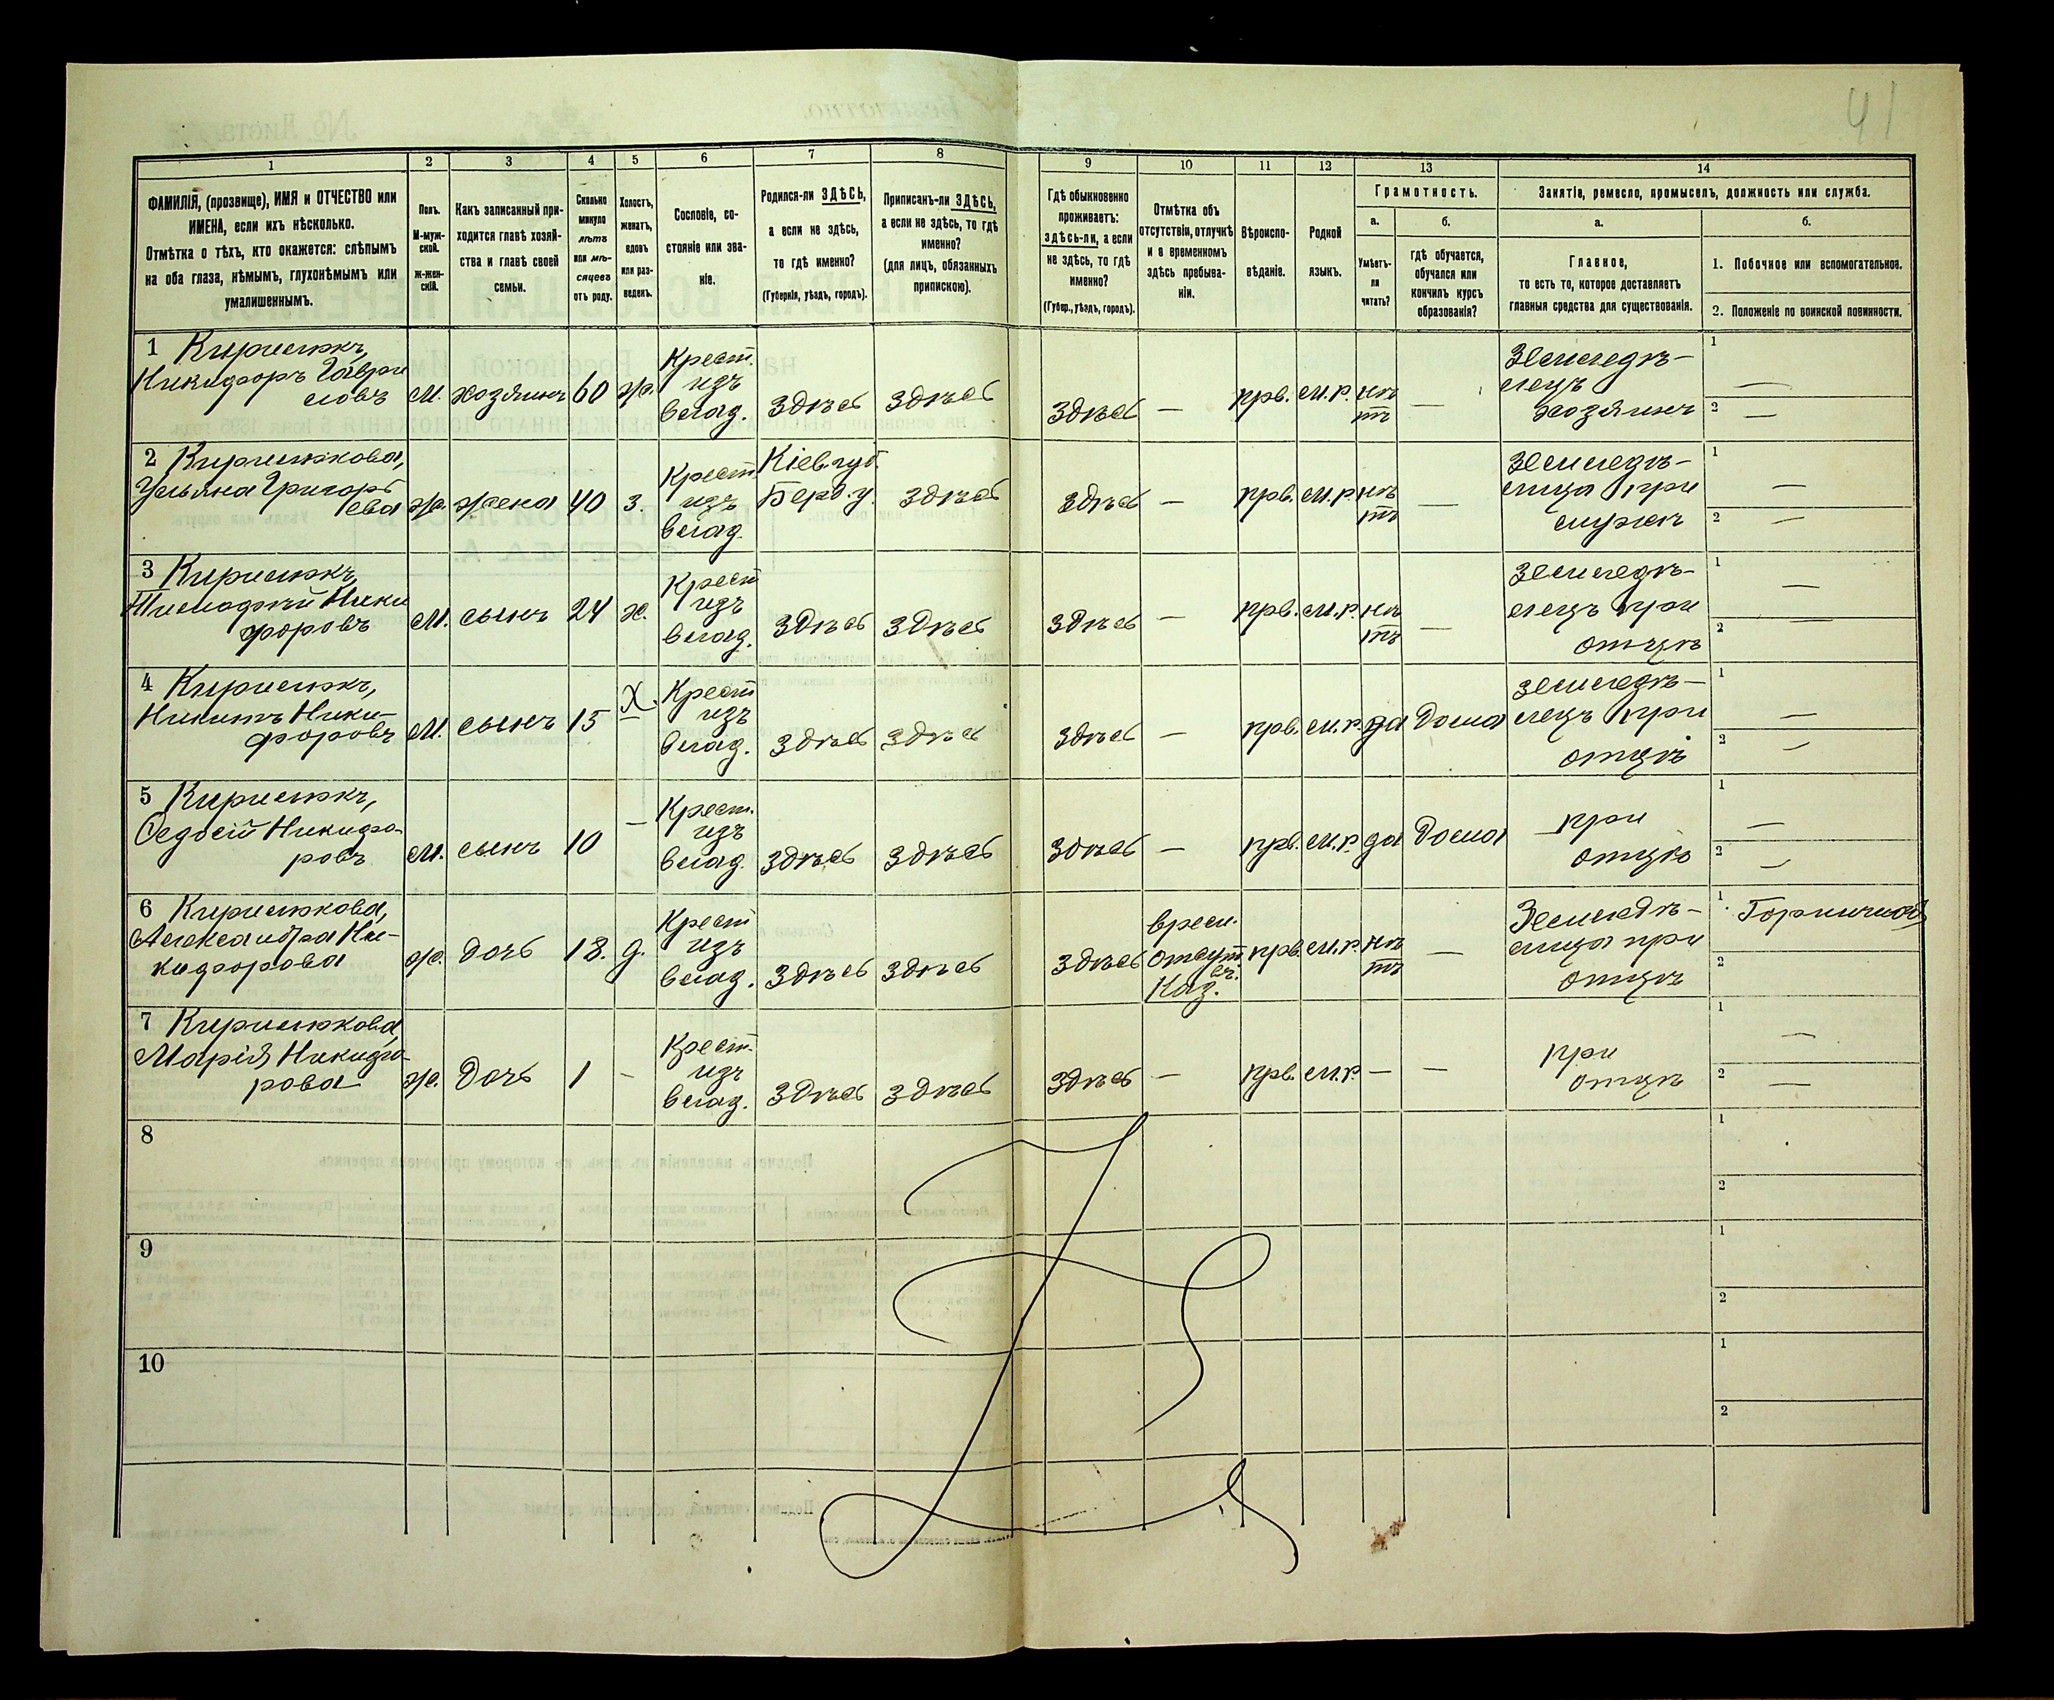 41
1 2 3 4 5 6 7 8 9 10 11 12 13 14
ФАМИЛІЯ, (прозвище), ИМЯ и ОТЧЕСТВО или
ИМЕНА, если ихъ нѣсколько.
Отмѣтка о тѣхъ, кто окажется: слѣпымъ
на оба глаза, нѣмымъ, глухонѣмымъ или
умалишеннымъ.
Полъ.
М-муж-
ской.
Ж-жен-
скій.
Какъ записанный при-
ходится главѣ хозяй-
ства и главѣ своей
семьи.
Сколько
минуло
лѣтъ
или мѣ-
сяцевъ
отъ роду.
Холостъ,
женатъ,
вдовъ
или раз-
веденъ.
Сословіе, со-
стояніе или зва-
ніе.
Родился-ли ЗДѢСЬ,
а если не здѣсь,
то гдѣ именно?
(Губернія, уѣздъ, городъ).
Приписанъ-ли ЗДѢСЬ,
а если не здѣсь, то гдѣ
именно?
(для лицъ, обязанныхъ
припискою).
Гдѣ обыкновенно
проживаетъ:
здѣсь-ли, а если
не здѣсь, то гдѣ
именно?
(Губер., уѣздъ, городъ).
Отмѣтка объ
отсутствіи, отлучкѣ
и о временномъ
здѣсь пребыва-
ніи.
Вѣроиспо-
вѣданіе.
Родной
языкъ.
Грамотность.
а.
Умѣетъ-
ли
читать?
б.
гдѣ обучается,
обучался или
кончилъ курсъ
образованія?
Занятіе, ремесло, промыселъ, должность или служба.
а.
Главное,
то есть то, которое доставляетъ
главныя средства для существованія.
б.
1. Побочное или вспомогательное.
2. Положеніе по воинской повинности.
1 Кирилюкъ,
Никифоръ Гаври
ловъ
м. хозяинъ 60 ж.
Крест.
изъ
влад.
здѣсь здѣсь здѣсь — прв. м.р.
нѣ
тъ
—
Земледѣ-
лецъ
хозяинъ
1 —
2 —
2 Кирилюкова,
Ульяна Григорь
ева
ж. жена 40 з.
Крест
изъ
влад.
Кіев. губ.
Берд. у.
здѣсь здѣсь — прв. м.р.
нѣ
тъ
—
земледѣ-
лица при
мужѣ
1 —
2 —
3 Кирилюкъ,
Тимофѣй Ники
форовъ
м. сынъ 24 х.
Крест
изъ
влад.
здѣсь здѣсь здѣсь — прв. м.р.
нѣ
тъ
—
земледѣ-
лецъ при
отцѣ
1 —
2 —
4 Кирилюкъ,
Никитъ Ники-
форовъ
м. сынъ 15 х.
Крест
изъ
влад.
здѣсь здѣсь здѣсь — прв. м.р. да дома
земледѣ-
лецъ при
отцѣ
1 —
2 —
5 Кирилюкъ,
Ѳедосій Никифо-
ровъ
м. сынъ 10 —
Крест.
изъ
влад.
здѣсь здѣсь здѣсь — прв. м.р. да дома
при
отцѣ
1 —
2 —
6 Кирилюкова,
Александра Ни-
кифорова
ж. дочь 18. д.
Крест
изъ
влад.
здѣсь здѣсь здѣсь
врем.
отсут
прв. м.р.
нѣ
тъ
—
Земледѣ-
лица при
отцѣ
1 Горничная
2
7 Кирилюкова,
Марія Никифо-
рова
ж. дочь 1 —
Крест.
изъ
влад.
здѣсь здѣсь здѣсь — прв. м.р. — —
при
отцѣ
1 —
2 —
8
1
2
9
1
2
10
1
2